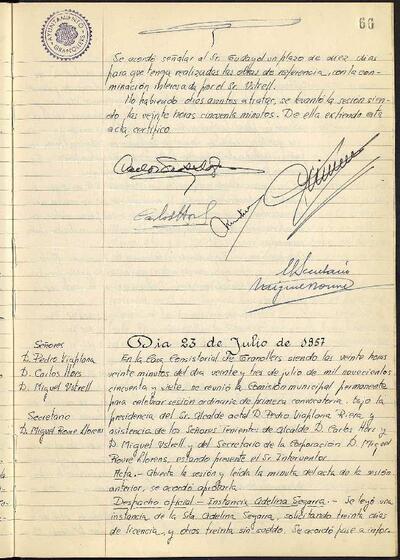 66
AYUNTAMIENTO
GRANOLLERS
Se acordó señalar al Sr. Gudayol un plazo de diez días
para que tenga realizadas las obras de referencia, con la con-
minación interesada por el Sr. Ustrell.
No habiendo otros asuntos a tratar, se levantó la sesión sien-
do las veinte horas cincuenta minutos. De ella extiendo esta
acta, certifico.
Carlos Hors
El Secretario
Dia 23 de Julio de 1957
Señores
D. Pedro Viaplana
D. Carlos Hors
D. Miguel Ustrell
Secretario
D. Miguel Roure Llorens
En la Casa Consistorial de Granollers siendo las veinte horas
veinte minutos del dia veinte y tres de julio de mil novecientos
cincuenta y siete, se reunió la Comisión municipal permanente
para celebrar sesión ordinaria de primera convocatoria, bajo la
presidencia del Sr. Alcalde actal D. Pedro Viaplana Riera y
asistencia de los Señores Tenientes de Alcalde D. Carlos Hors y
D. Miguel Ustrell y del Secretario de la Corporación D. Miguel
Roure Llorens, estando presente el Sr. Interventor.
Acta.- Abierta la sesión y leída la minuta del acta de la sesión
anterior, se acordó aprobarla.
Despacho oficial - Instancia Adelina Segarra.- Se leyó una
instancia de la Sta. Adelina Segarra, solicitando treinta días
de licencia, y otros treinta sin sueldo. Se acordó pase a infor-